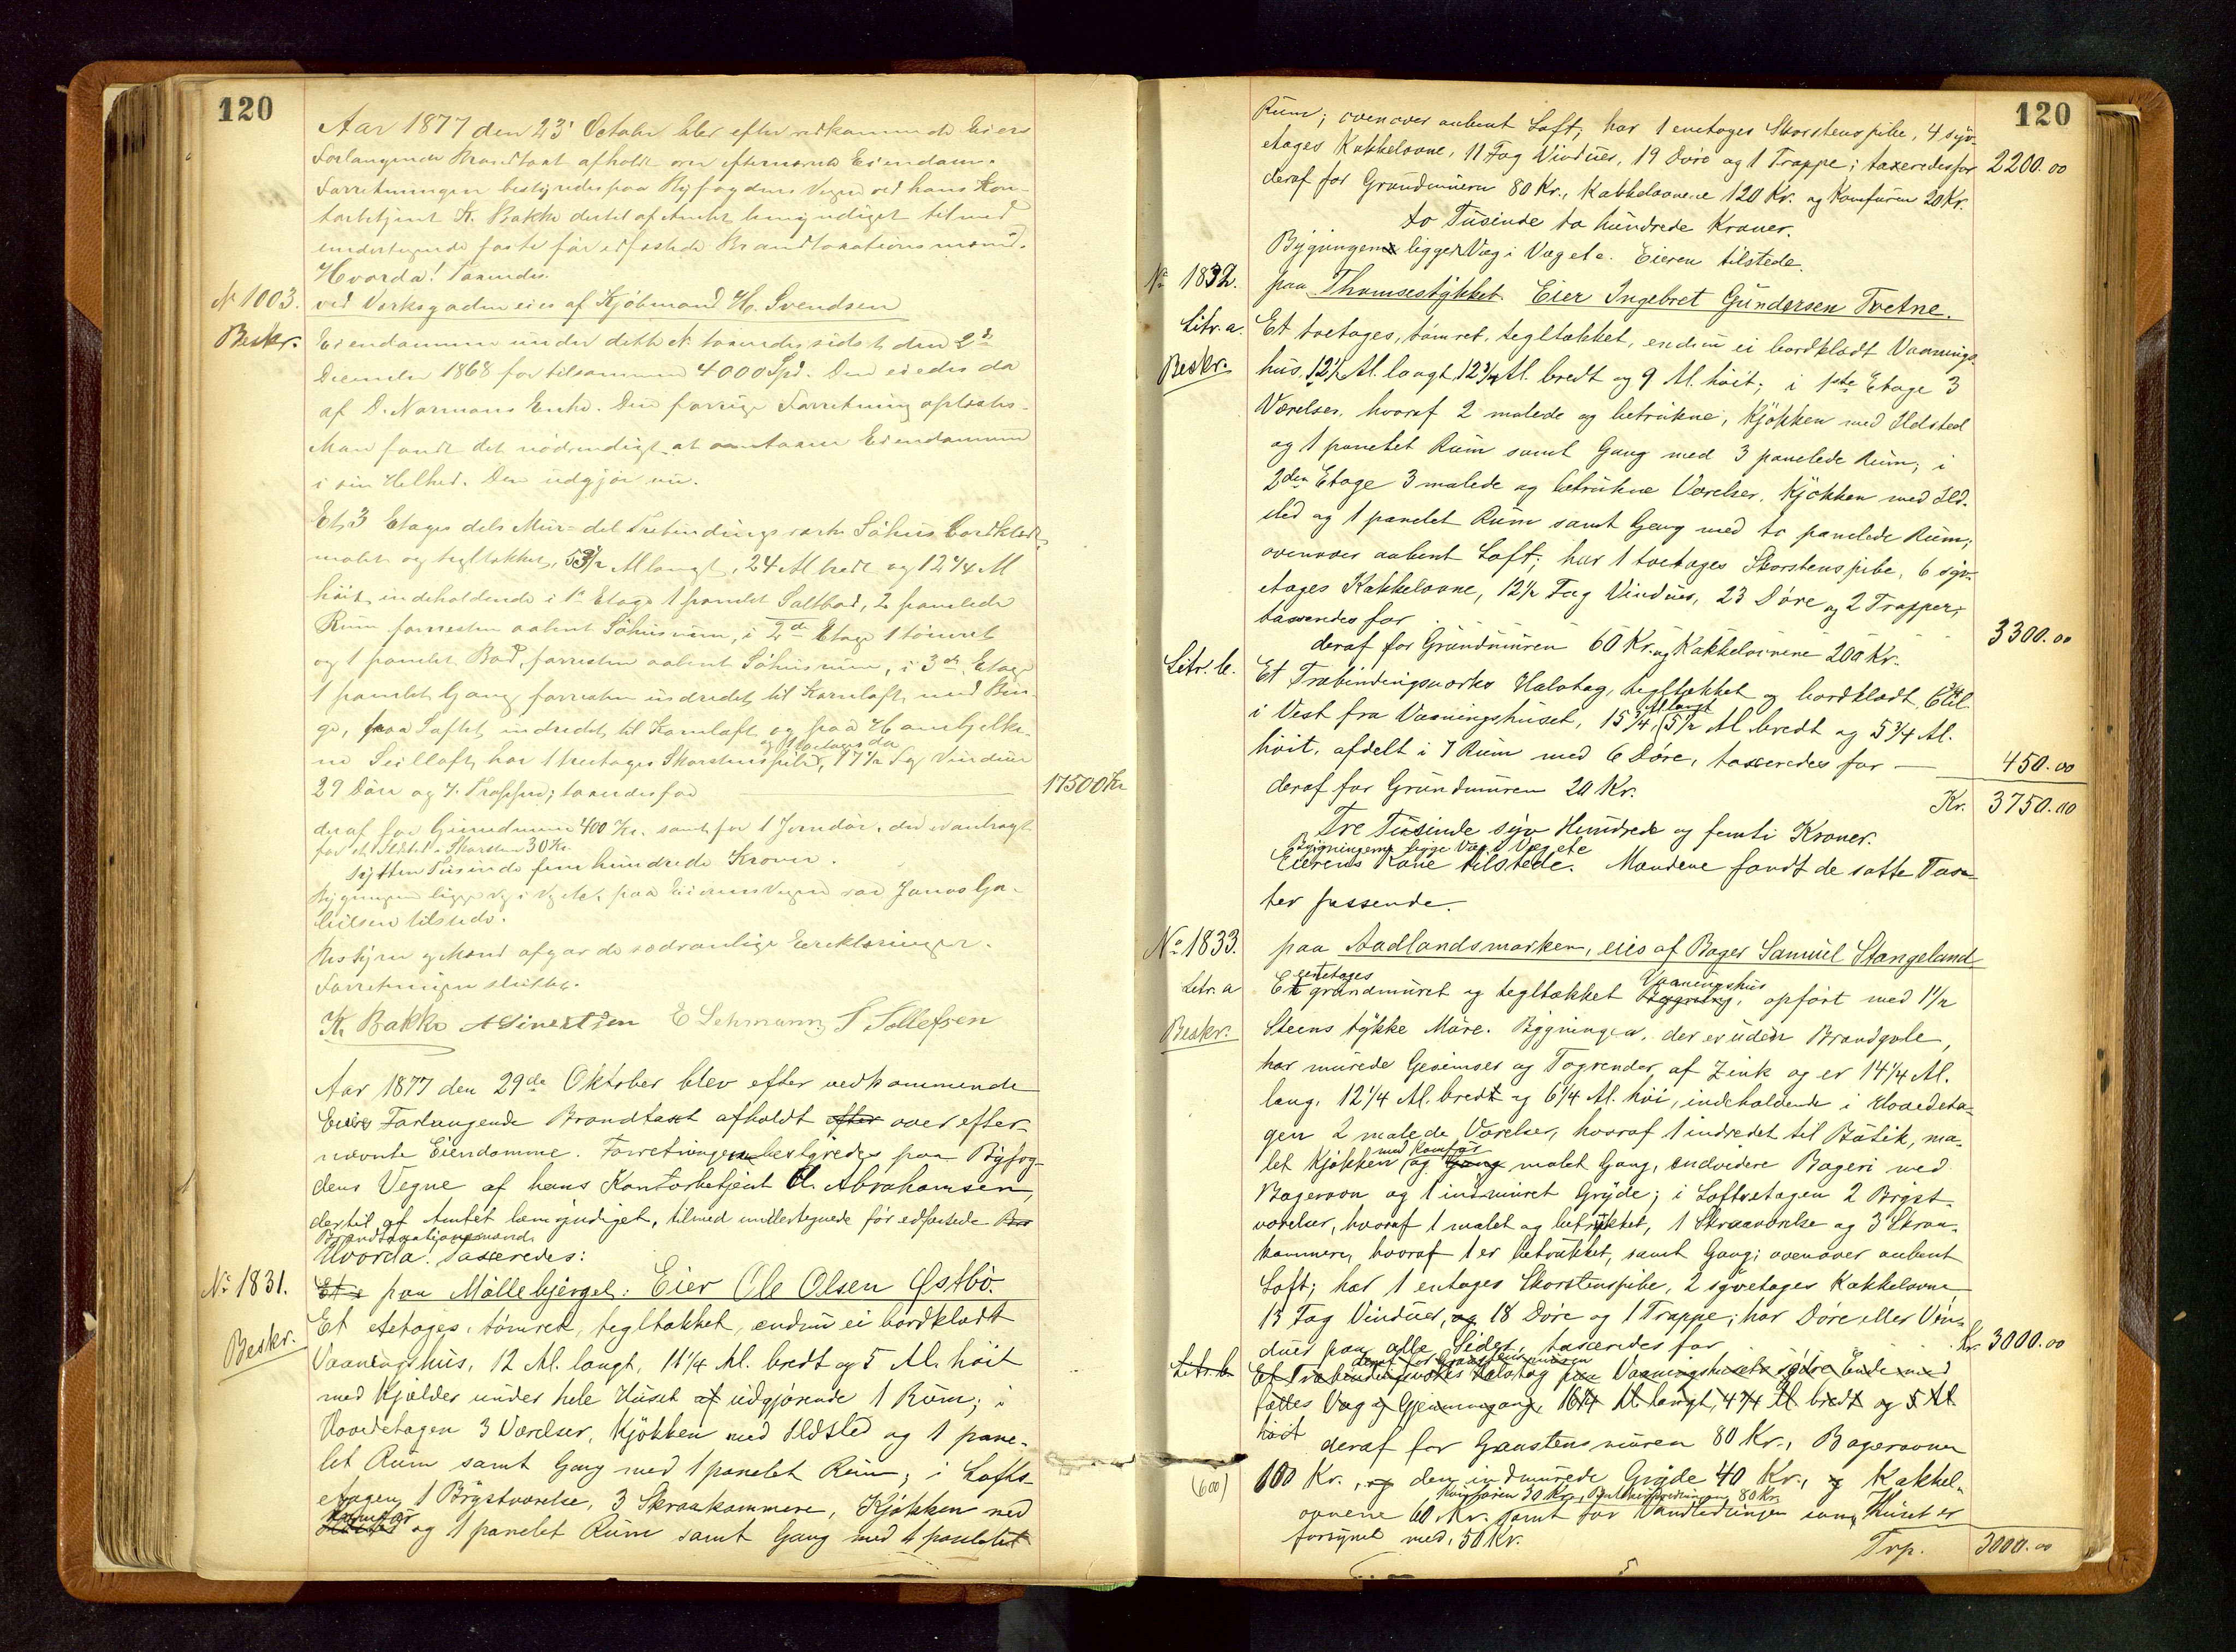 120
Aar 1877 den 23' October blev efter vedkommende Eiers
Forlangende Brandtaxt afholdt over efternævnte Eiendom.
Forretningen bestyredes paa Byfogdens Vegne ved hans Kon-
torbetjent K. Bakke dertil af Amtet bemyndiget tilmed
undertegnede faste før edfæstede Brandtaxationsmænd.
Hvorda! Taxeredes.
No 1003. ved Verksgaden eies af Kjøbmand H. Svendsen
Beskr. Eiendommen under dette No taxeredes sidst den 2d
December 1868 for tilsammen 4000 Spd. Den eiedes da
af D. Normans Enke. Den forrige Forretning oplæstes.
Man fandt det nødvendigt at omtaxere Eiendommen
i sin Helhed. Den udgjør nu.
Et 3 Etages dels Mur- del Trebindingsverks Søhus, bordklædt,
malet og tegltækket, 53 1/2 Al langt, 24 Al bredt og 12 1/4 Al
høit, indeholdende i 1ste Etage 1 panelet Saltbod, 2 panelede
Rum forresten aabent Søhusrum, i 2den Etage 1 tømret
og 1 panelet Bod, forresten aabent Søhusrum, i 3die Etage
1 panelet Gang forresten indredet til Kornloft med Bin-
ge, paa Loftet indredet til Kornloft og paa Hanebjelke-
ne Seilloft, har 1 treetages Skorstenspibe, 17 1/2 Fag Vinduer
29 Døre og 7 Trapper; taxeredes for 17500 Kr
deraf for Grundmuren 400 Kr. samt for 1 Jerndør, der er anbragt
for et Ildsted i Skorsten 30 Kr.
Sytten Tusinde fem hundrede Kroner.
Bygningen ligger Væg i Væg etc. paa Eierens Vegne var Jonas Ga-
bielsen tilstede.
Bestyrer og Mænd afgav de sædvanlige Erklæringer.
Forretningen sluttet.
K. Bakke A Sivertsen E Lehmann T. Tollefsen
Aar 1877 den 29de Oktober blev efter vedkommende
Eiers Forlangende Brandtaxt afholdt efter over efter-
nævnte Eiendomme. Forretningen bestyredes paa Byfog-
dens Vegne af hans Kontorbetjent A. Abrahamsen,
dertil af Amtet bemyndiget, tilmed undertegnede før edfæstede Bra
Brandtaxationsmænd.
Hvorda! Taxeredes:
No 1831. Et paa Møllebjerget: Eier Ole Olsen Østbø.
Beskr. Et etetages, tømret, tegltækket, endnu ei bordklædt
Vaaningshus, 12 Al. langt, 11 1/4 Al. bredt og 5 Al. høit
med Kjælder under hele Huset af udgjørende 1 Rum; i
Hovedetagen 3 Værelser, Kjøkken med Ildsted og 1 pane-
let Rum samt Gang med 1 panelet Rum; i Lofts-
etagen 1 Brystværelse, 3 Skraakammere, Kjøkken med
Komfur
Ildsted og 1 panelet Rum samt Gang med 1 panelet
120
Rum; ovenover aabent Loft; har 1 enetages Skorstenspibe, 4 syv-
etages Kakkelovne, 11 Fag Vinduer, 19 Døre og 1 Trappe; taxeredes for 2200.00
deraf for Grundmuren 80 Kr., Kakkelovnene 120 Kr. og Komfuren 20 Kr.
to Tusinde to hundrede Kroner.
Bygningen ligger Væg i Væg etc. Eieren tilstede.
No 1832. paa Thomsestykket. Eier Ingebret Gundersen Tvetne.
Litr. a. Et toetages, tømret, tegltækket, endnu ei bordklædt Vaanings-
Beskr. hus, 12 1/2 Al. langt, 12 3/4 Al. bredt og 9 Al. høit; i 1ste Etage 3
Værelser, hvoraf 2 malede og betrukne, Kjøkken med Ildsted
og 1 panelet Rum samt Gang med 3 panelede Rum; i
2den Etage 3 malede og betrukne Værelser, Kjøkken med Ild-
sted og 1 panelet Rum samt Gang med to panelede Rum;
ovenover aabent Loft; har 1 toetages Skorstenspibe, 6 syv-
etages Kakkelovne, 12 1/2 Fag Vinduer, 23 Døre og 2 Trapper;
taxeredes for 3300.00
deraf for Grundmuren 60 Kr. og Kakkelovnene 200 Kr.
Litr. b. Et Træbindingsverks Halvtag, tegltækket og bordklædt, 6 Al
i Vest fra Vaaningshuset, 15 3/4 Al langt, 5 1/2 Al bredt og 5 3/4 Al.
høit, afdelt i 7 Rum med 6 Døre, taxeredes for 450.00
deraf for Grundmuren 20 Kr.
Kr. 3750.00
Tre Tusinde syv Hundrede og femti Kroner.
Bygningerne ligge Væg i Væg etc
Eierens Kone tilstede. Mændene fandt de satte Tax-
ter passende.
No 1833. paa Aadlandsmarken, eies af Bager Samuel Stangeland
enetages Vaaningshus
Litr. a Et grundmuret og tegltækket Bygning, opført med 1 1/2
Beskr. Steens tykke Mure. Bygningen, der er uden Brandgvle,
har murede Gesimser og Tagrender af Zink og er 14 1/4 Al.
lang, 12 1/4 Al. bredt og 6 1/4 Al. høi, indeholdende i Hovedeta-
gen 2 malede Værelser, hvoraf 1 indredet til Butik, ma-
med Komfur
let Kjøkken og Gang malet Gang, endvidere Bageri med
Bagerovn og 1 indmuret Gryde; i Loftsetagen 2 Bryst-
værelser, hvoraf 1 malet og betrukket, 1 Skraaværelse og 3 Skraa-
kammere, hvoraf 1 er betrukket, samt Gang; ovenover aabent
Loft; har 1 entages Skorstenspibe, 2 syvetages Kakkelovne,
13 Fag Vinduer, og 18 Døre og 1 Trappe; har Døre eller Vin-
duer paa alle Sider, taxeredes for Kr. 3000.00
deraf for Graastensmuren
Litr. b. Et Træbindingsverks Halvtag paa Vaaningshusets søndre Ende med
fælles Væg og Gjennemgang, 16 1/4 Al langt, 4 3/4 Al bredt og 5 Al
høit
deraf for Graastensmuren 80 Kr., Bagerovnen
(600) 100 Kr., og den indmurede Gryde 40 Kr., og Kakkel-
Komfuren 30 Kr., Butikindredningen 80 Kr.
ovnene 60 Kr. samt for Vandledningen som Huset er
forsynet med, 50 Kr.
Trp. 3000.00